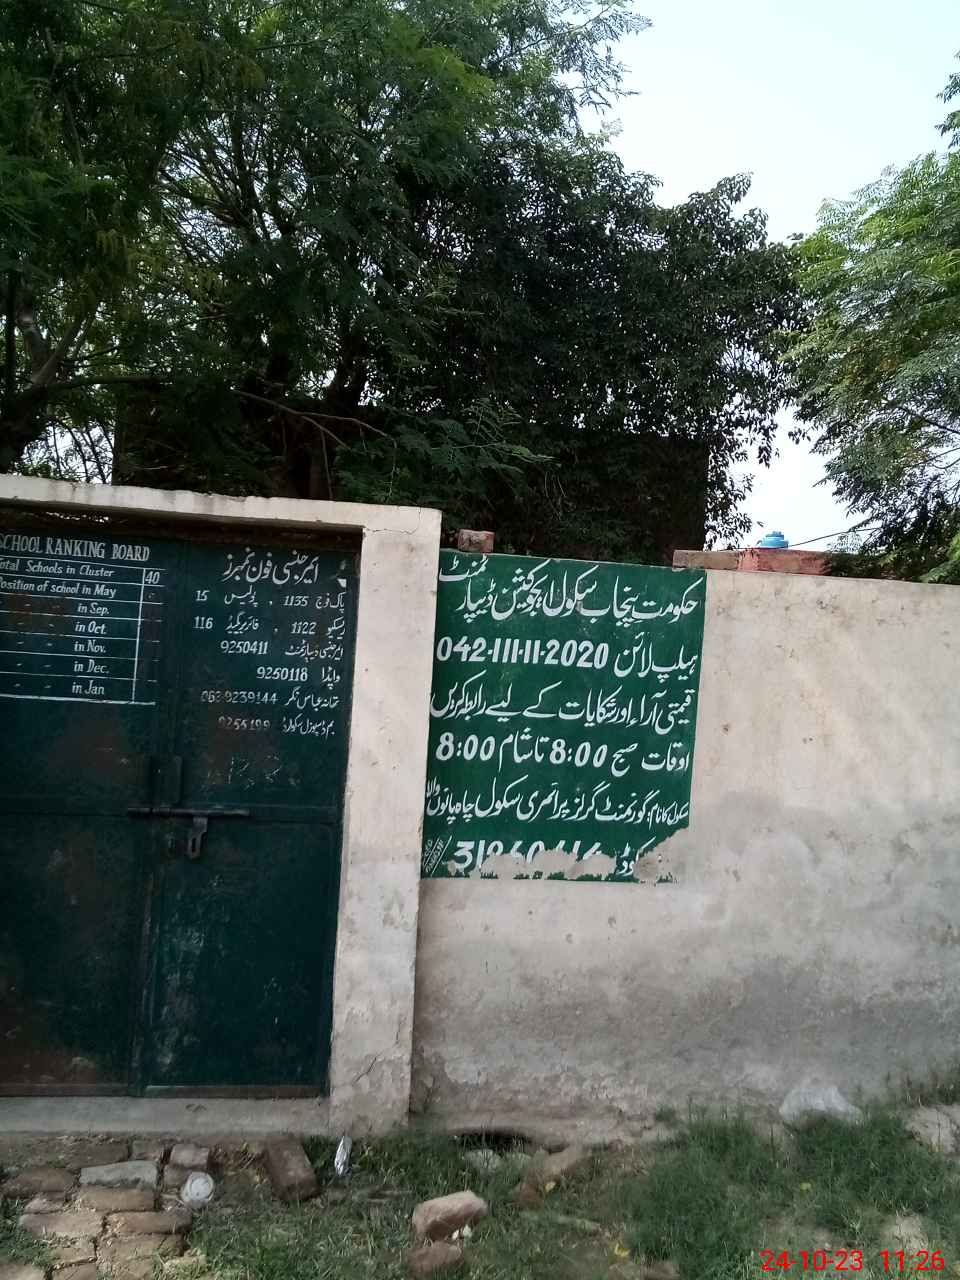 SCHOOL RANKING BOARD
Total Schools in Cluster 40
Position of school in May
" " " in Sep.
" " " in Oct.
" " " in Nov.
" " " in Dec.
" " " in Jan
ایمرجنسی فون نمبرز
پاک فوج 1135 ، پولیس 15
ریسکیو 1122 ، فائر بریگیڈ 116
ایمرجنسی ڈیپارٹمنٹ 9250411
واپڈا 9250118
تھانہ عباس نگر 9239144
بم ڈسپوزل سکواڈ 9255199
حکومتِ پنجاب سکول ایجوکیشن ڈیپارٹمنٹ
ہیلپ لائن 042-111-11-2020
قیمتی آراء اور شکایات کے لیے رابطہ کریں
اوقات صبح 8:00 تا شام 8:00
سکول کا نام: گورنمنٹ گرلز پرائمری سکول چاہ پائوں والا
کوڈ
24-10-23 11:26